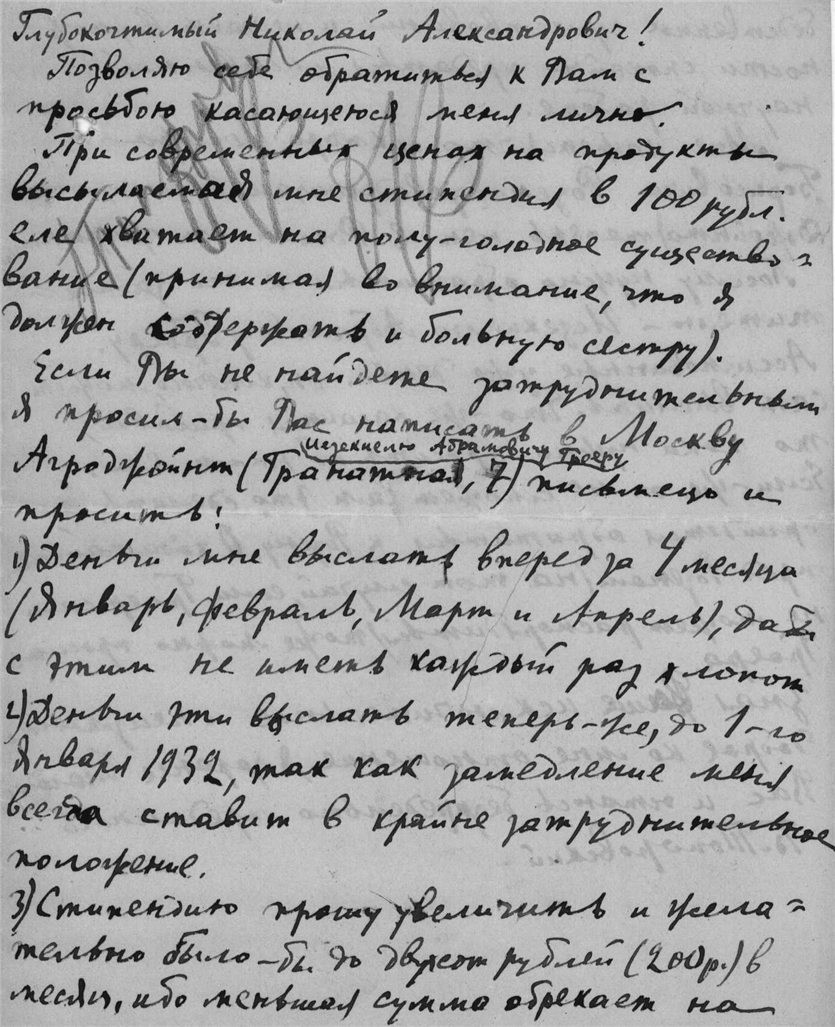 Глубокочтимый Николай Александрович!
Позволяю себе обратиться к Вам с
просьбою касающеюся меня лично.
При современных ценах на продукты
высылаемая мне стипендия в 100 рубл.
еле хватает на полу-голодное существо=
вание (принимая во внимание, что я
должен содержать и больную сестру).
Если Вы не найдете затруднительным
я просил-бы Вас написать в Москву
Иезекиелю Абрамовичу Грееру
Агроджойнт (Гранатная, 7) письмецо и
просить:
1) Деньги мне выслать вперед за 4 месяца
(Январь, Февраль, Март и Апрель), дабы
с этим не иметь каждый раз хлопот
2) Деньги эти выслать теперь-же, до 1-го
Января 1932, так как замедление меня
всегда ставит в крайне затруднительное
положение.
3) Стипендию прошу увеличить и жела=
тельно было-бы до двухсот рублей (200р.) в
месяц, ибо меньшая сумма обрекает на